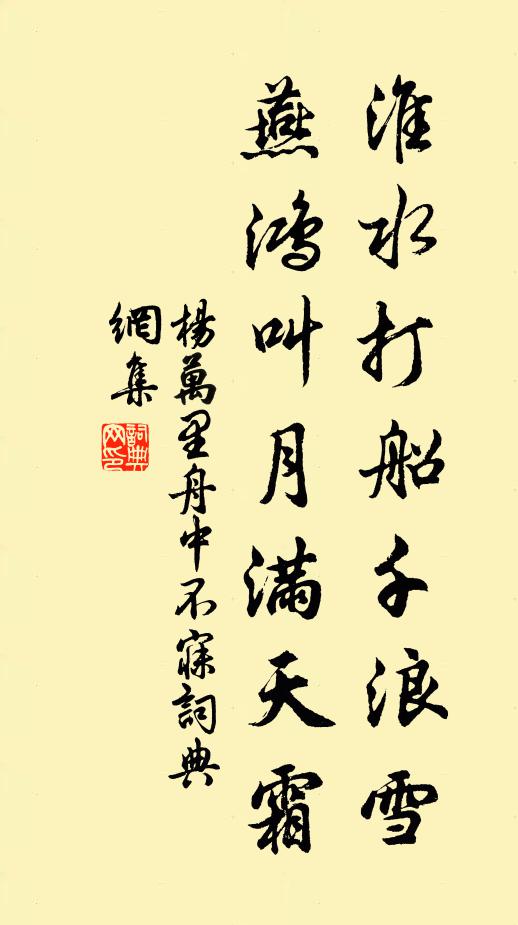 淮水打船千浪雪
燕鴻叫月滿天霜
楊萬里舟中不寐詞典
網集
詞典
网印